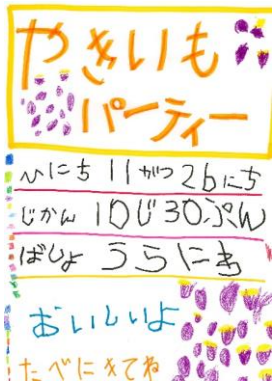 やきいも
パーティー
ひにち 11がつ26にち
じかん 10じ30ぷん
ばしょ うらにわ
おいしいよ
たべにきてね